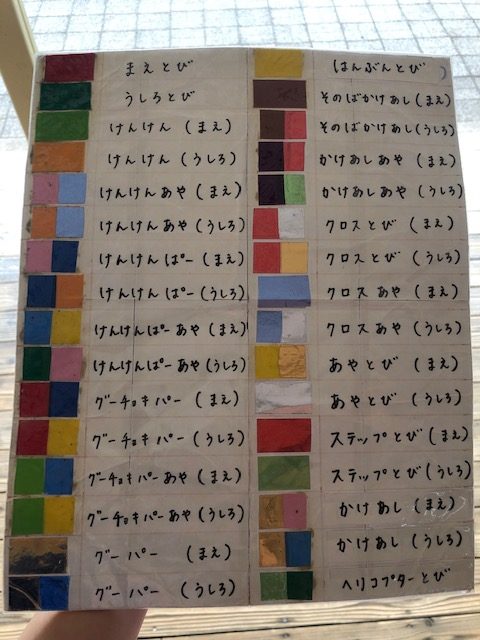 まえとび
うしろとび
けんけん (まえ)
けんけん (うしろ)
けんけんあや (まえ)
けんけんあや (うしろ)
けんけんぱー (まえ)
けんけんぱー (うしろ)
けんけんぱーあや (まえ)
けんけんぱーあや (うしろ)
グーチョキパー (まえ)
グーチョキパー (うしろ)
グーチョキパーあや (まえ)
グーチョキパーあや (うしろ)
グーパー (まえ)
グーパー (うしろ)
はんぶんとび
そのばかけあし (まえ)
そのばかけあし (うしろ)
かけあしあや (まえ)
かけあしあや (うしろ)
クロスとび (まえ)
クロスとび (うしろ)
クロスあや (まえ)
クロスあや (うしろ)
あやとび (まえ)
あやとび (うしろ)
ステップとび (まえ)
ステップとび (うしろ)
かけあし (まえ)
かけあし (うしろ)
ヘリコプターとび